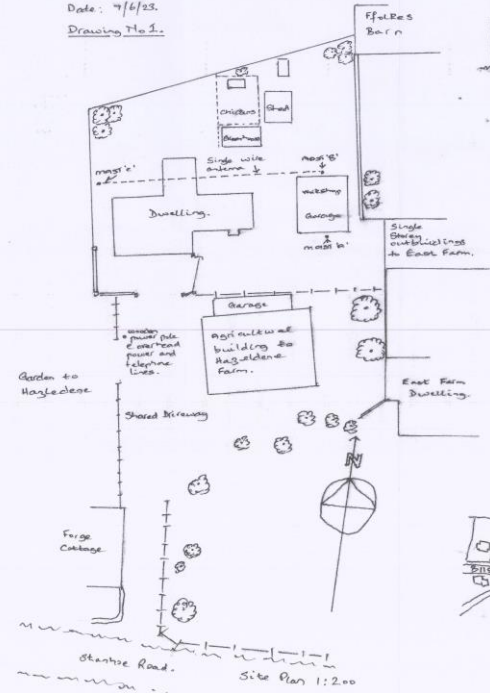 Date: 7/6/23.
Drawing No 1.
Ffolkes
Barn
Chickens
Shed
Greenhouse
Single wire
antenna
mast 'C'
mast 'B'
Dwelling.
workshop
Garage
mast 'A'
Single
Storey
outbuildings
to East Farm.
Garage
Agricultural
building to
Hazeldene
Farm.
wooden
power pole
& overhead
power and
telephone
lines.
Garden to
Hazledene
Shared Driveway
East Farm
Dwelling.
N
Forge
Cottage
Stanhoe Road.
Site Plan 1:200